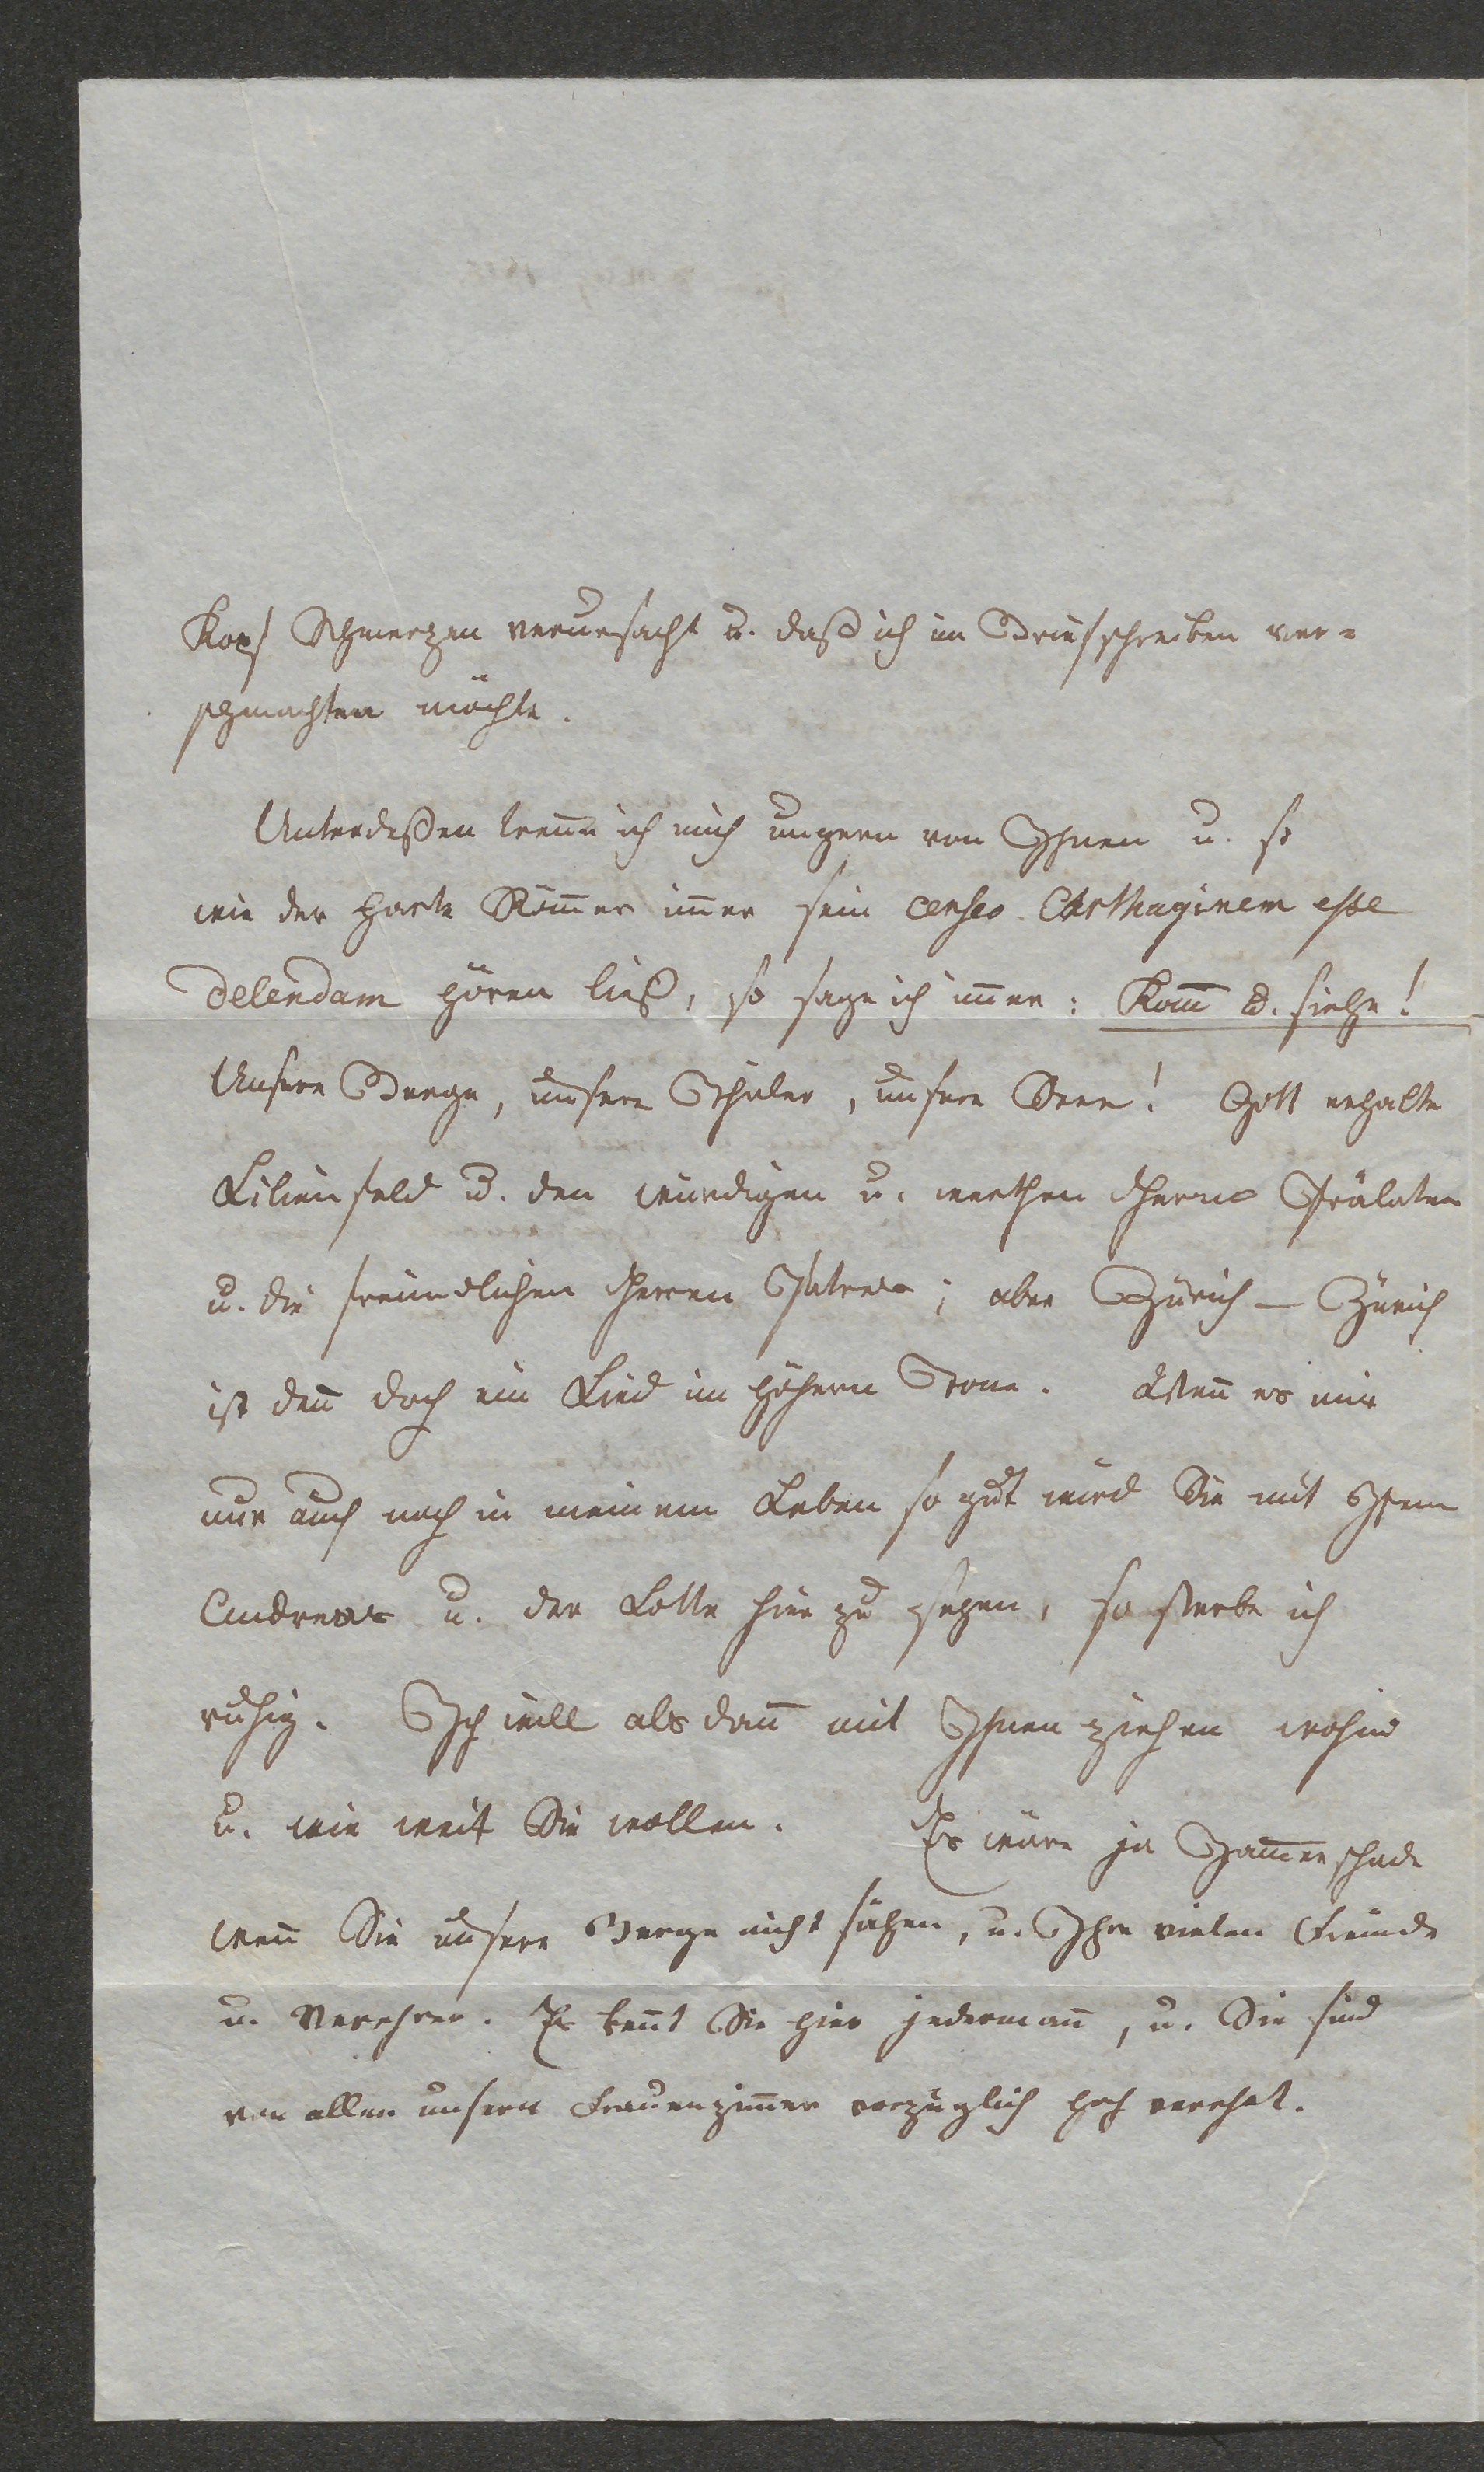 Kopf Schmerzen verursacht u. daß ich im Briefschreiben ver=
schmachten möchte.
Unterdeßen trenn̅ ich mich ungern von Ihnen u. so
wie der harte Röm̅er im̅er sein censeo Carthaginem esse
delendam hören ließ, so sage ich im̅er: Kom̅ u. siehe!
Unsere Berge, unsere Thäler, unsere Seen! Gott erhalte
Lilienfeld u. den würdigen u. werthen Herrn Prälaten
u. die freundlichen Herren Patres; aber Zürich – Zürich
ist den̅ doch ein Lied im höhern Tone. Wen̅ es mir
nur auch noch in meinem Leben so gut wird Sie mit Ihrem
Andreas u. der Lotte hier zu sehen, so sterbe ich
ruhig. Ich will alsdan̅ mit Ihnen ziehen wohin
u. wie weit Sie wollen. Es wäre ja Jam̅erschade
wen̅ Sie unsere Berge nicht sähen, u. Ihre vielen Freunde
u. Verehrer. Es ken̅t Sie hier jederman̅, u. Sie sind
von allen unsern Frauenzim̅er vorzüglich hoch verehrt.